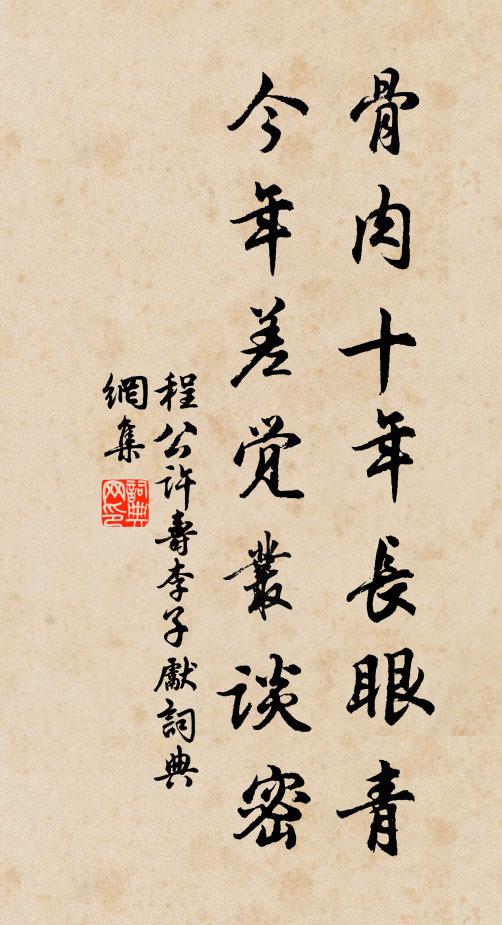 骨肉十年長眼青
今年差觉叢談密
程公许壽李子獻詞典
網集
詞典网印